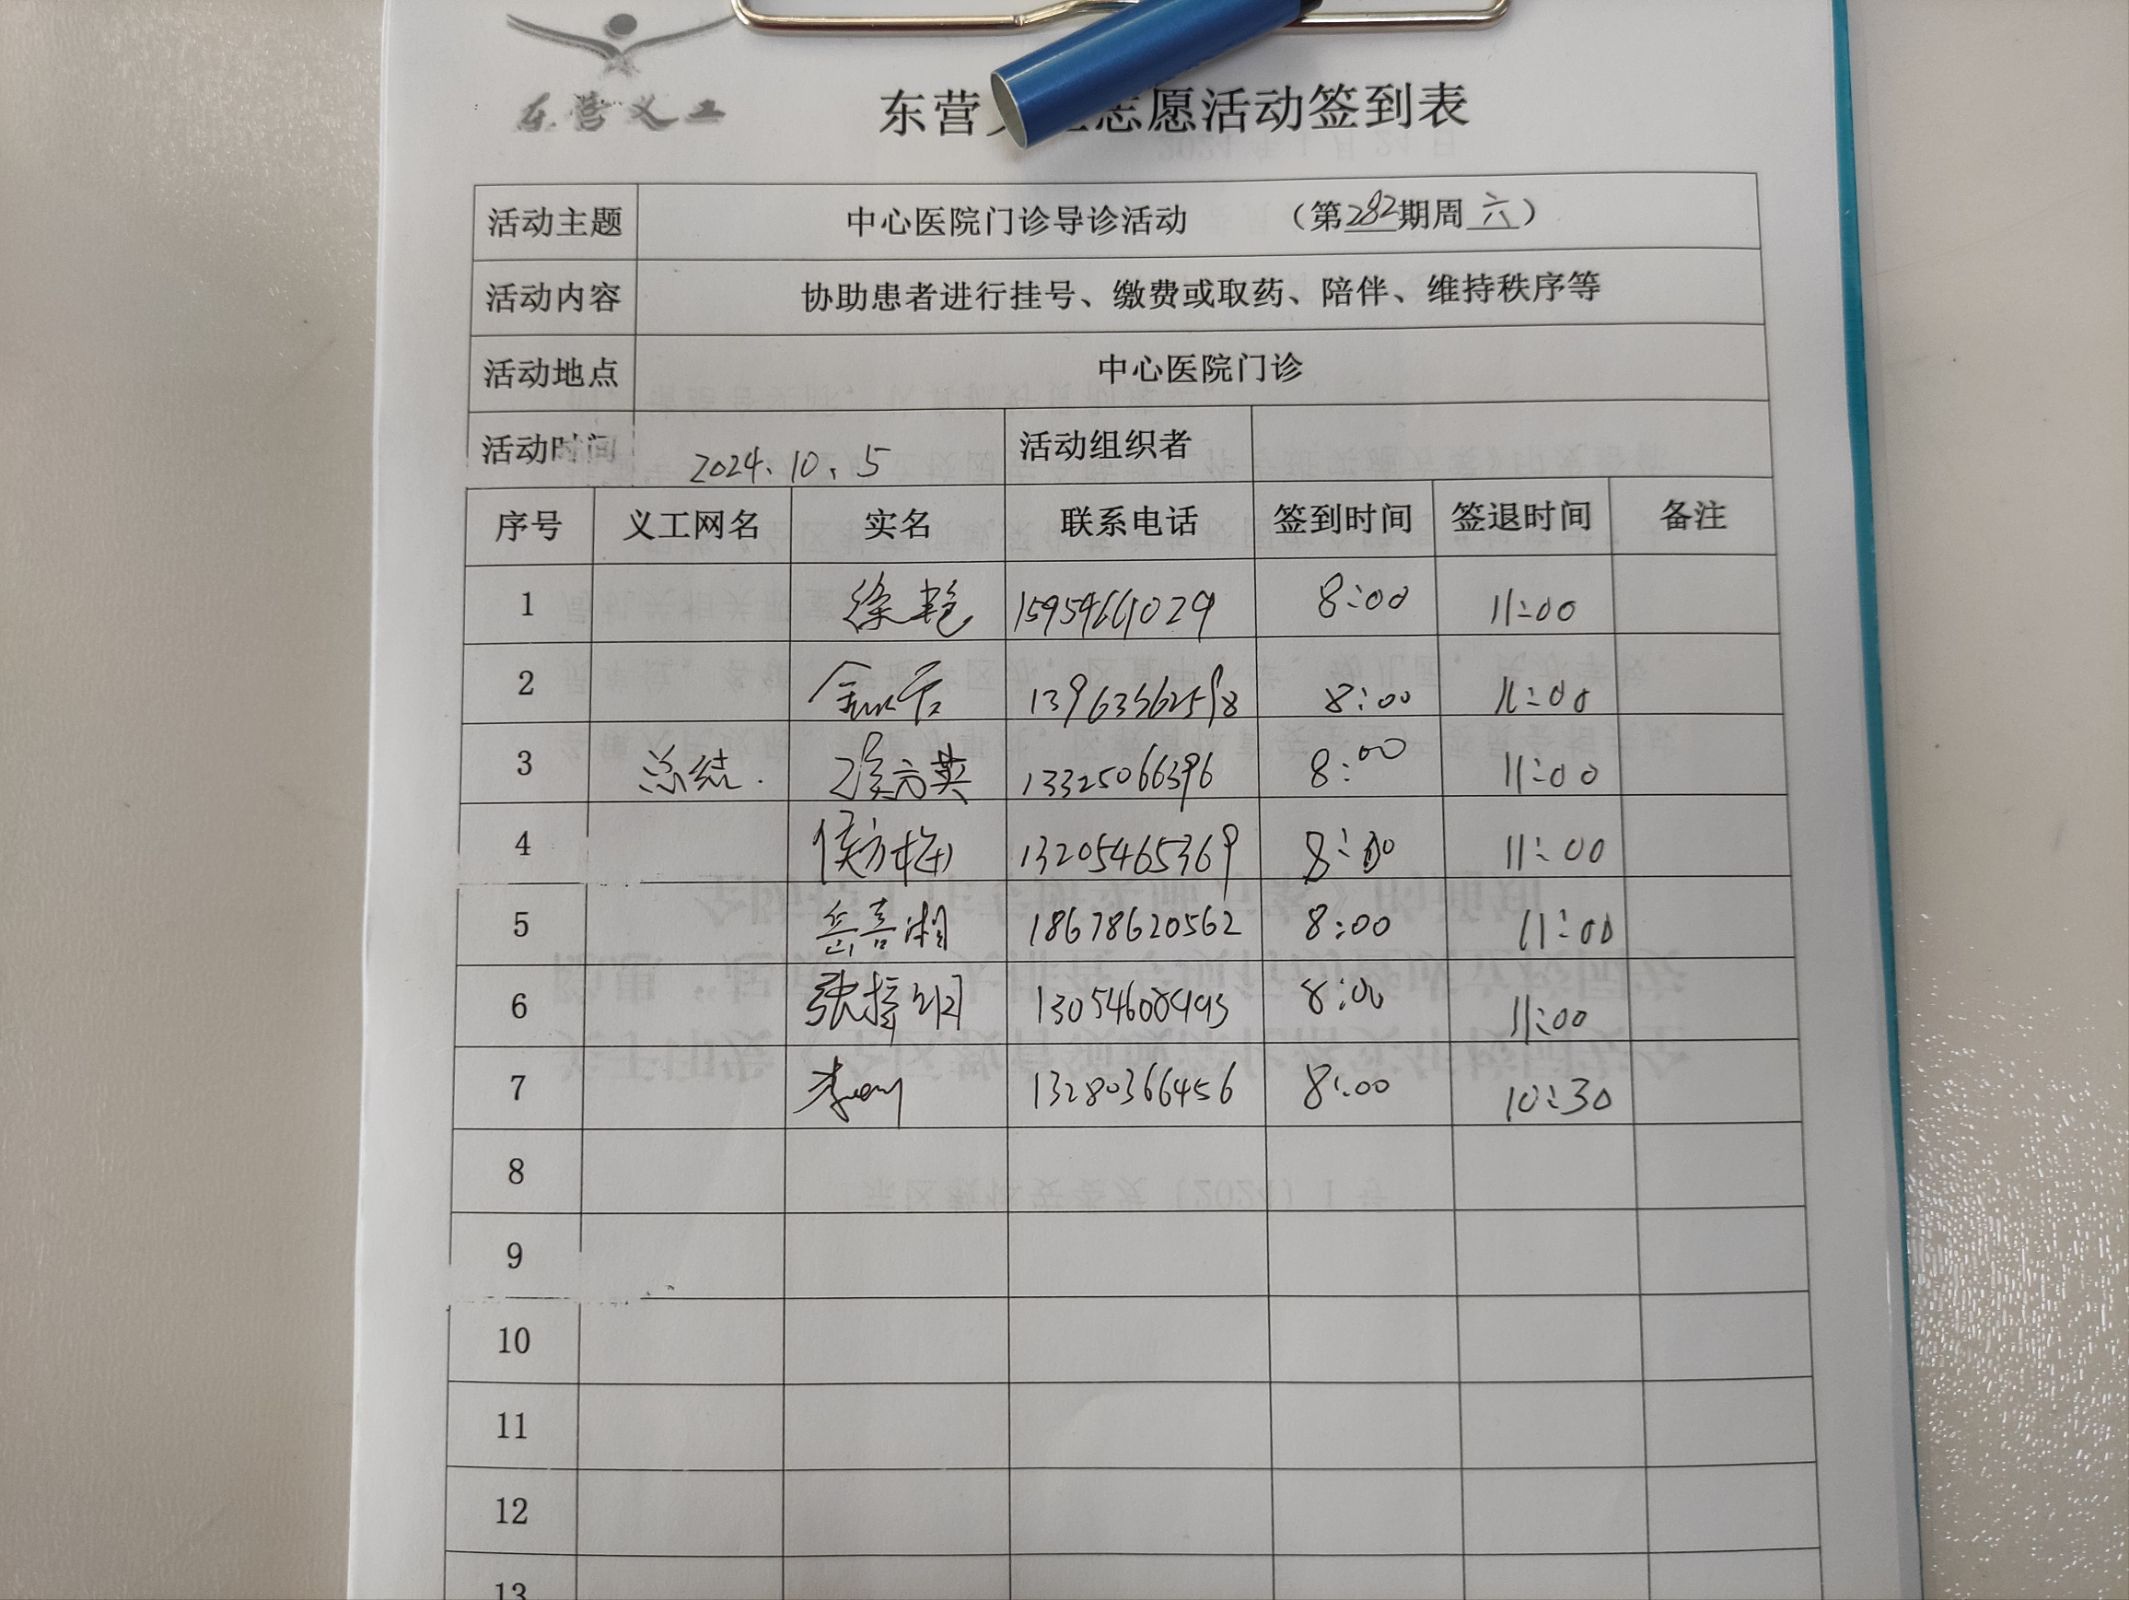 东营义工
东营 志愿活动签到表
活动主题 中心医院门诊导诊活动 （第282期周六）
活动内容 协助患者进行挂号、缴费或取药、陪伴、维持秩序等
活动地点 中心医院门诊
活动时间 2024.10.5 活动组织者
序号 义工网名 实名 联系电话 签到时间 签退时间 备注
1 徐艳 15954661029 8:00 11:00
2 13963362598 8:00 11:00
3 总结. 方英 13325066396 8:00 11:00
4 侯方梅 13205465369 8:00 11:00
5 岳喜湘 18678620562 8:00 11:00
6 张 8:00 11:00
7 李 13280366456 8:00 10:30
8
9
10
11
12
13